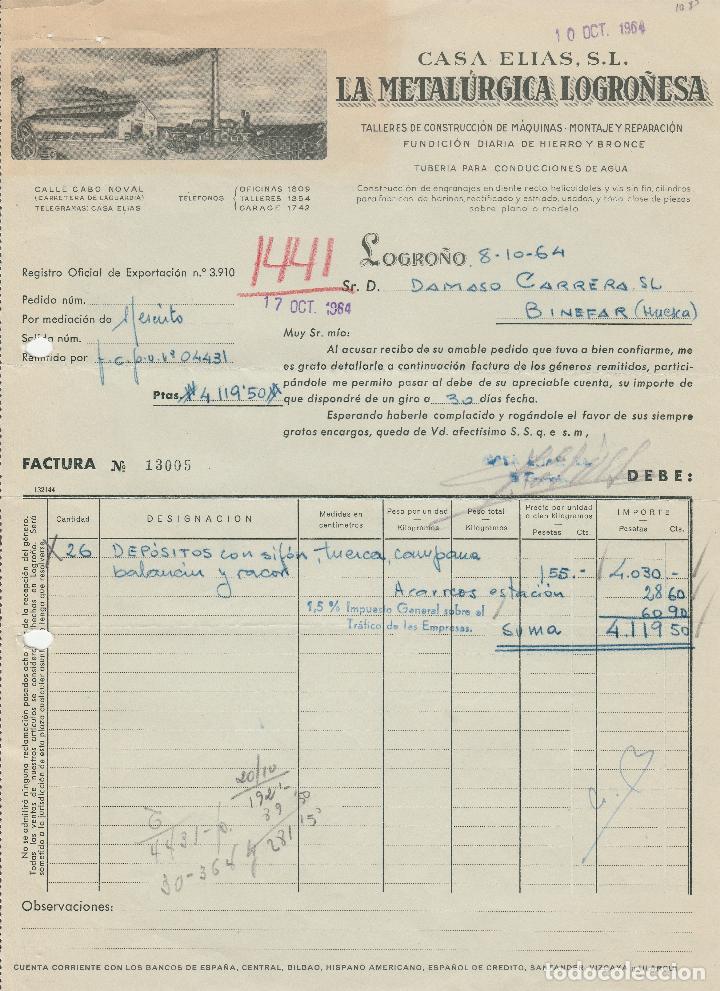 10 OCT. 1964
CASA ELIAS, S.L.
LA METALÚRGICA LOGROÑESA
TALLERES DE CONSTRUCCIÓN DE MÁQUINAS - MONTAJE Y REPARACIÓN
FUNDICIÓN DIARIA DE HIERRO Y BRONCE
TUBERIA PARA CONDUCCIONES DE AGUA
CALLE CABO NOVAL
(CARRETERA DE LAGUARDIA)
TELEGRAMAS: CASA ELIAS
TELÉFONOS
OFICINAS 1809
TALLERES 1354
GARAGE 1742
Construcción de engranajes en diente recto, helicoidales y vis sin fin, cilindros
para fábricas de harinas, rectificado y estriado, usados, y toda clase de piezas
sobre plano o modelo
1441
17 OCT. 1964
LOGROÑO, 8-10-64
Registro Oficial de Exportación n.º 3.910
Sr. D. DAMASO CARRERA, SL
BINEFAR (Huesca)
Pedido núm.
Por mediación de
Salida núm.
Remitido por f.c. p.v. Nº 04431
Ptas. # 4.119'50 #
Muy Sr. mío:
Al acusar recibo de su amable pedido que tuvo a bien confiarme, me
es grato detallarle a continuación factura de los géneros remitidos, partici-
pándole me permito pasar al debe de su apreciable cuenta, su importe de
que dispondré de un giro a 30 días fecha.
Esperando haberle complacido y rogándole el favor de sus siempre
gratos encargos, queda de Vd. afectísimo S. S. q e s. m,
FACTURA Nº 13005
DEBE:
132144
Cantidad
DESIGNACION
Medidas en
centímetros
Peso por unidad
Kilogramos
Peso total
Kilogramos
Precio por unidad
o cien Kilogramos
Pesetas Cts
IMPORTE
Pesetas Cts.
26 DEPÓSITOS con sifón, tuerca, campana
balancín y racor 155.- 4.030 -
Acarreos estación 28 60
1,5 % Impuesto General sobre el 60 90
Tráfico de las Empresas.
Suma 4.119 50
No se admitirá ninguna reclamación pasados ocho de la recepción del género.
Todas las ventas de nuestros artículos se considera hechas en Logroño. Será
sometido a la jurisdicción de esta plaza cualquier asunto tenga que resolverse
20/10
192
39
281 15
4431
30-364
Observaciones:
CUENTA CORRIENTE CON LOS BANCOS DE ESPAÑA, CENTRAL, BILBAO, HISPANO AMERICANO, ESPAÑOL DE CREDITO, SANTANDER, VIZCAYA
todocoleccion